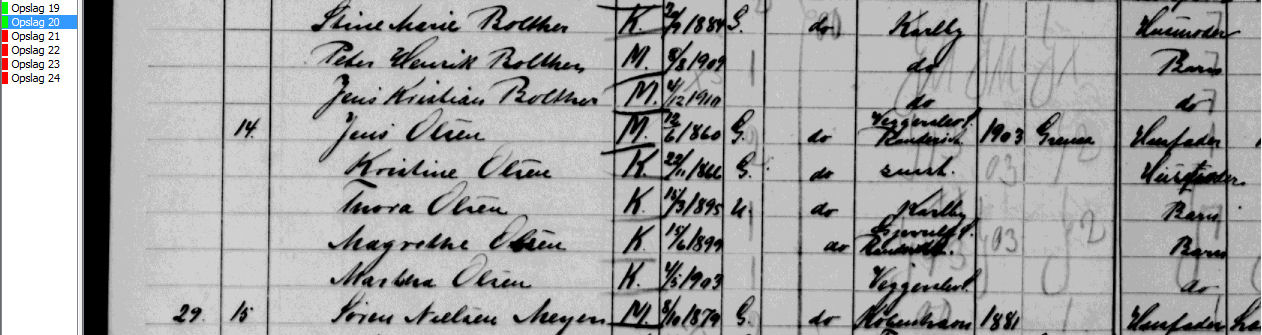 Opslag 19
Opslag 20
Opslag 21
Opslag 22
Opslag 23
Opslag 24
Stine Marie Bolther K. /1884 G. do Karlby Husmoder
Peter Henrik Bolther M. 8/8 1909 do Barn
Jens Kristian Bolther M. /12 1910 do do
14. Jens Olsen M. 12/6 1860 G. do Veggerslev S. Randers 1903 Grenaa Husfader
Kristine Olsen K. 22/11 1866 G. do smst. Husmoder
Thora Olsen K. 15/3 1895 U. do Karlby Barn
Magrethe Olsen K. 15/6 1899 do Barn
Martha Olsen K. 4/5 1903 Veggerslev S. do
29. 15 Søren Nielsen Meyer M. 8/10 1879 G. do København 1881 Husfader